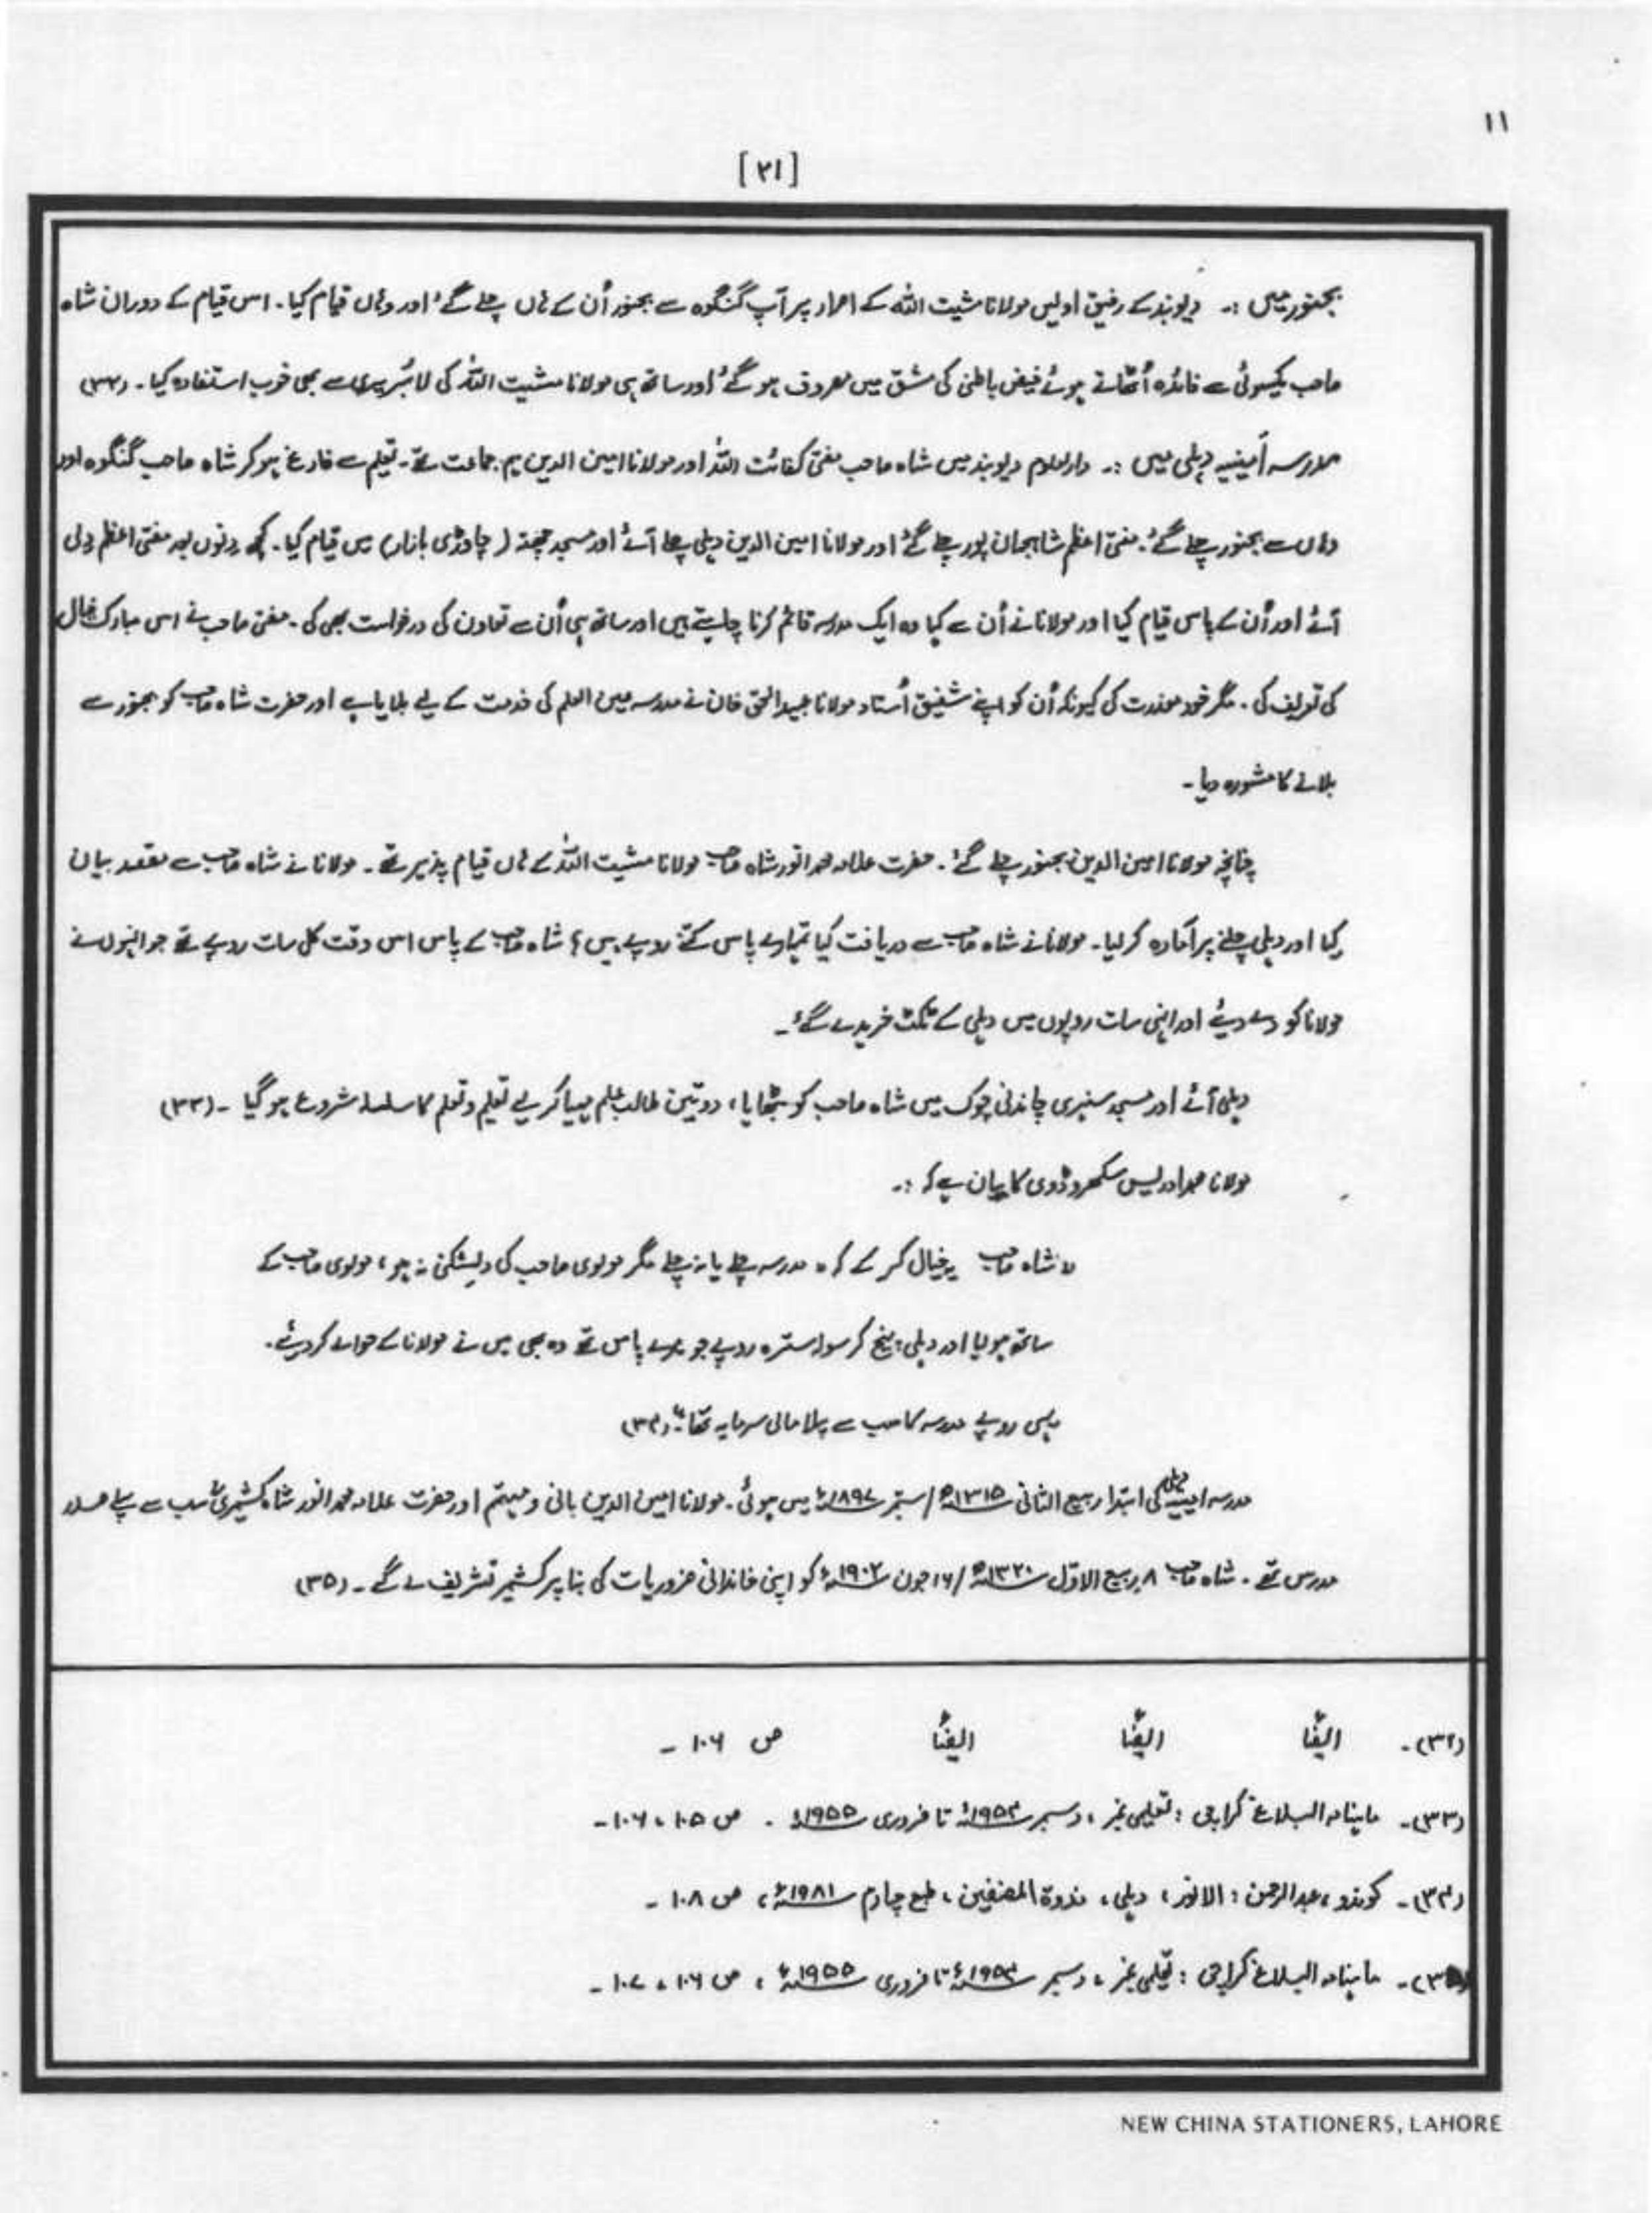 ۱۱
[۲۱]
بجنور میں :۔ دیوبند کے رفیق اولیں مولانا مشیت اللہ کے اصرار پر آپ گنگوہ سے بجنور اُن کے ہاں چلے گئے اور وہاں قیام کیا۔ اس قیام کے دوران شاہ
صاحب یکسوئی سے فائدہ اُٹھاتے ہوئے فیض باطنی کی مشق میں مصروف ہو گئے اور ساتھ ہی مولانا مشیت اللہ کی لائبریری سے بھی خوب استفادہ کیا۔ (۳۲)
مدرسہ اَمینیہ دہلی میں :۔ دارالعلوم دیوبند میں شاہ صاحب مفتی کفائت اللہ اور مولانا امین الدین ہم جماعت تھے۔ تعلیم سے فارغ ہو کر شاہ صاحب گنگوہ اور
وہاں سے بجنور چلے گئے۔ مفتی اعظم شاہجہان پور چلے گئے اور مولانا امین الدین دہلی چلے آئے اور مسجد چھتہ (چاوڑی بازار) میں قیام کیا۔ کچھ دِنوں بعد مفتی اعظم دِلی
آئے اور اُن کے پاس قیام کیا اور مولانا نے اُن سے کہا وہ ایک مدرسہ قائم کرنا چاہتے ہیں اور ساتھ ہی اُن سے تعاون کی درخواست بھی کی۔ مفتی صاحب نے اس مبارک خیال
کی تعریف کی۔ مگر خود معذرت کی کیونکہ اُن کو اپنے شفیق اُستاد مولانا عبیدالحق خان نے مدرسہ عین العلم کی خدمت کے لیے بلایا ہے اور حضرت شاہ صاحب کو بجنور سے
بلانے کا مشورہ دیا۔
چنانچہ مولانا امین الدین بجنور چلے گئے۔ حضرت علامہ محمد انور شاہ صاحب مولانا مشیت اللہ کے ہاں قیام پذیر تھے۔ مولانا نے شاہ صاحب سے مقصد بیان
کیا اور دہلی چلنے پر آمادہ کر لیا۔ مولانا نے شاہ صاحب سے دریافت کیا تمہارے پاس کتنے روپے ہیں؟ شاہ صاحب کے پاس اس وقت کل سات روپے تھے جو انہوں نے
مولانا کو دے دیئے اور اِنہی سات روپوں میں دہلی کے ٹکٹ خریدے گئے۔
دہلی آئے اور مسجد سنہری چاندنی چوک میں شاہ صاحب کو بٹھایا، دو تین طالب علم مہیا کر لیے تعلیم و تعلم کا سلسلہ شروع ہو گیا ۔ (۳۳)
مولانا محمد ادریس سکھروڈوی کا بیان ہے کہ :۔
"شاہ صاحب یہ خیال کر کے کہ، مدرسہ چلے یا نہ چلے مگر مولوی صاحب کی دِلشکنی نہ ہو، مولوی صاحب کے
ساتھ ہو لیا اور دہلی پہنچ کر سولہ سترہ روپے جو میرے پاس تھے وہ بھی میں نے مولانا کے حوالے کر دیئے۔
یہی روپے مدرسہ کا سب سے پہلا مالی سرمایہ تھا"۔ (۳۴)
مدرسہ امینیہ دہلی کی ابتدا ربیع الثانی ۱۳۱۵ھ / ستمبر ۱۸۹۷ء میں ہوئی۔ مولانا امین الدین بانی و مہتمم اور حضرت علامہ محمد انور شاہ کشمیریؒ سب سے پہلے صدر
مدرس تھے۔ شاہ صاحب ۸ ربیع الاوّل ۱۳۲۰ھ / ۱۶ جون ۱۹۰۲ء کو اپنی خاندانی ضروریات کی بنا پر کشمیر تشریف لے گے۔ (۳۵)
(۳۲)۔ ایضًا ایضًا ایضًا ص ۱۰۶ ۔
(۳۳)۔ ماہنامہ البلاغ کراچی : تعلیمی نمبر، دسمبر ۱۹۵۴ء تا فروری ۱۹۵۵ء ۔ ص ۱۰۵، ۱۰۶۔
(۳۴)۔ کوندو، عبدالرحمن : الانور، دہلی، ندوۃ المصنفین، طبع چہارم ۱۹۸۱ء، ص ۱۰۸ ۔
(۳۵)۔ ماہنامہ البلاغ کراچی : تعلیمی نمبر، دسمبر ۱۹۵۴ء تا فروری ۱۹۵۵ء، ص ۱۰۶، ۱۰۷ ۔
NEW CHINA STATIONERS, LAHORE